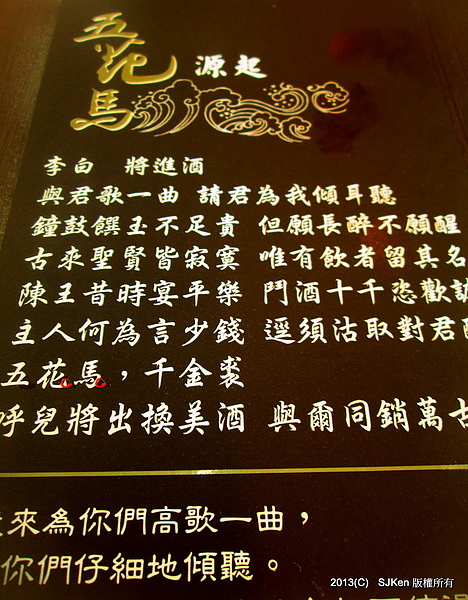 五花馬 源起
李白 將進酒
與君歌一曲 請君為我傾耳聽
鐘鼓饌玉不足貴 但願長醉不願醒
古來聖賢皆寂寞 唯有飲者留其名
陳王昔時宴平樂 鬥酒十千恣歡
主人何為言少錢 逕須沽取對君
五花馬，千金裘
呼兒將出換美酒 與爾同銷萬古
來為你們高歌一曲，
你們仔細地傾聽。
2013(C) SJKen 版權所有